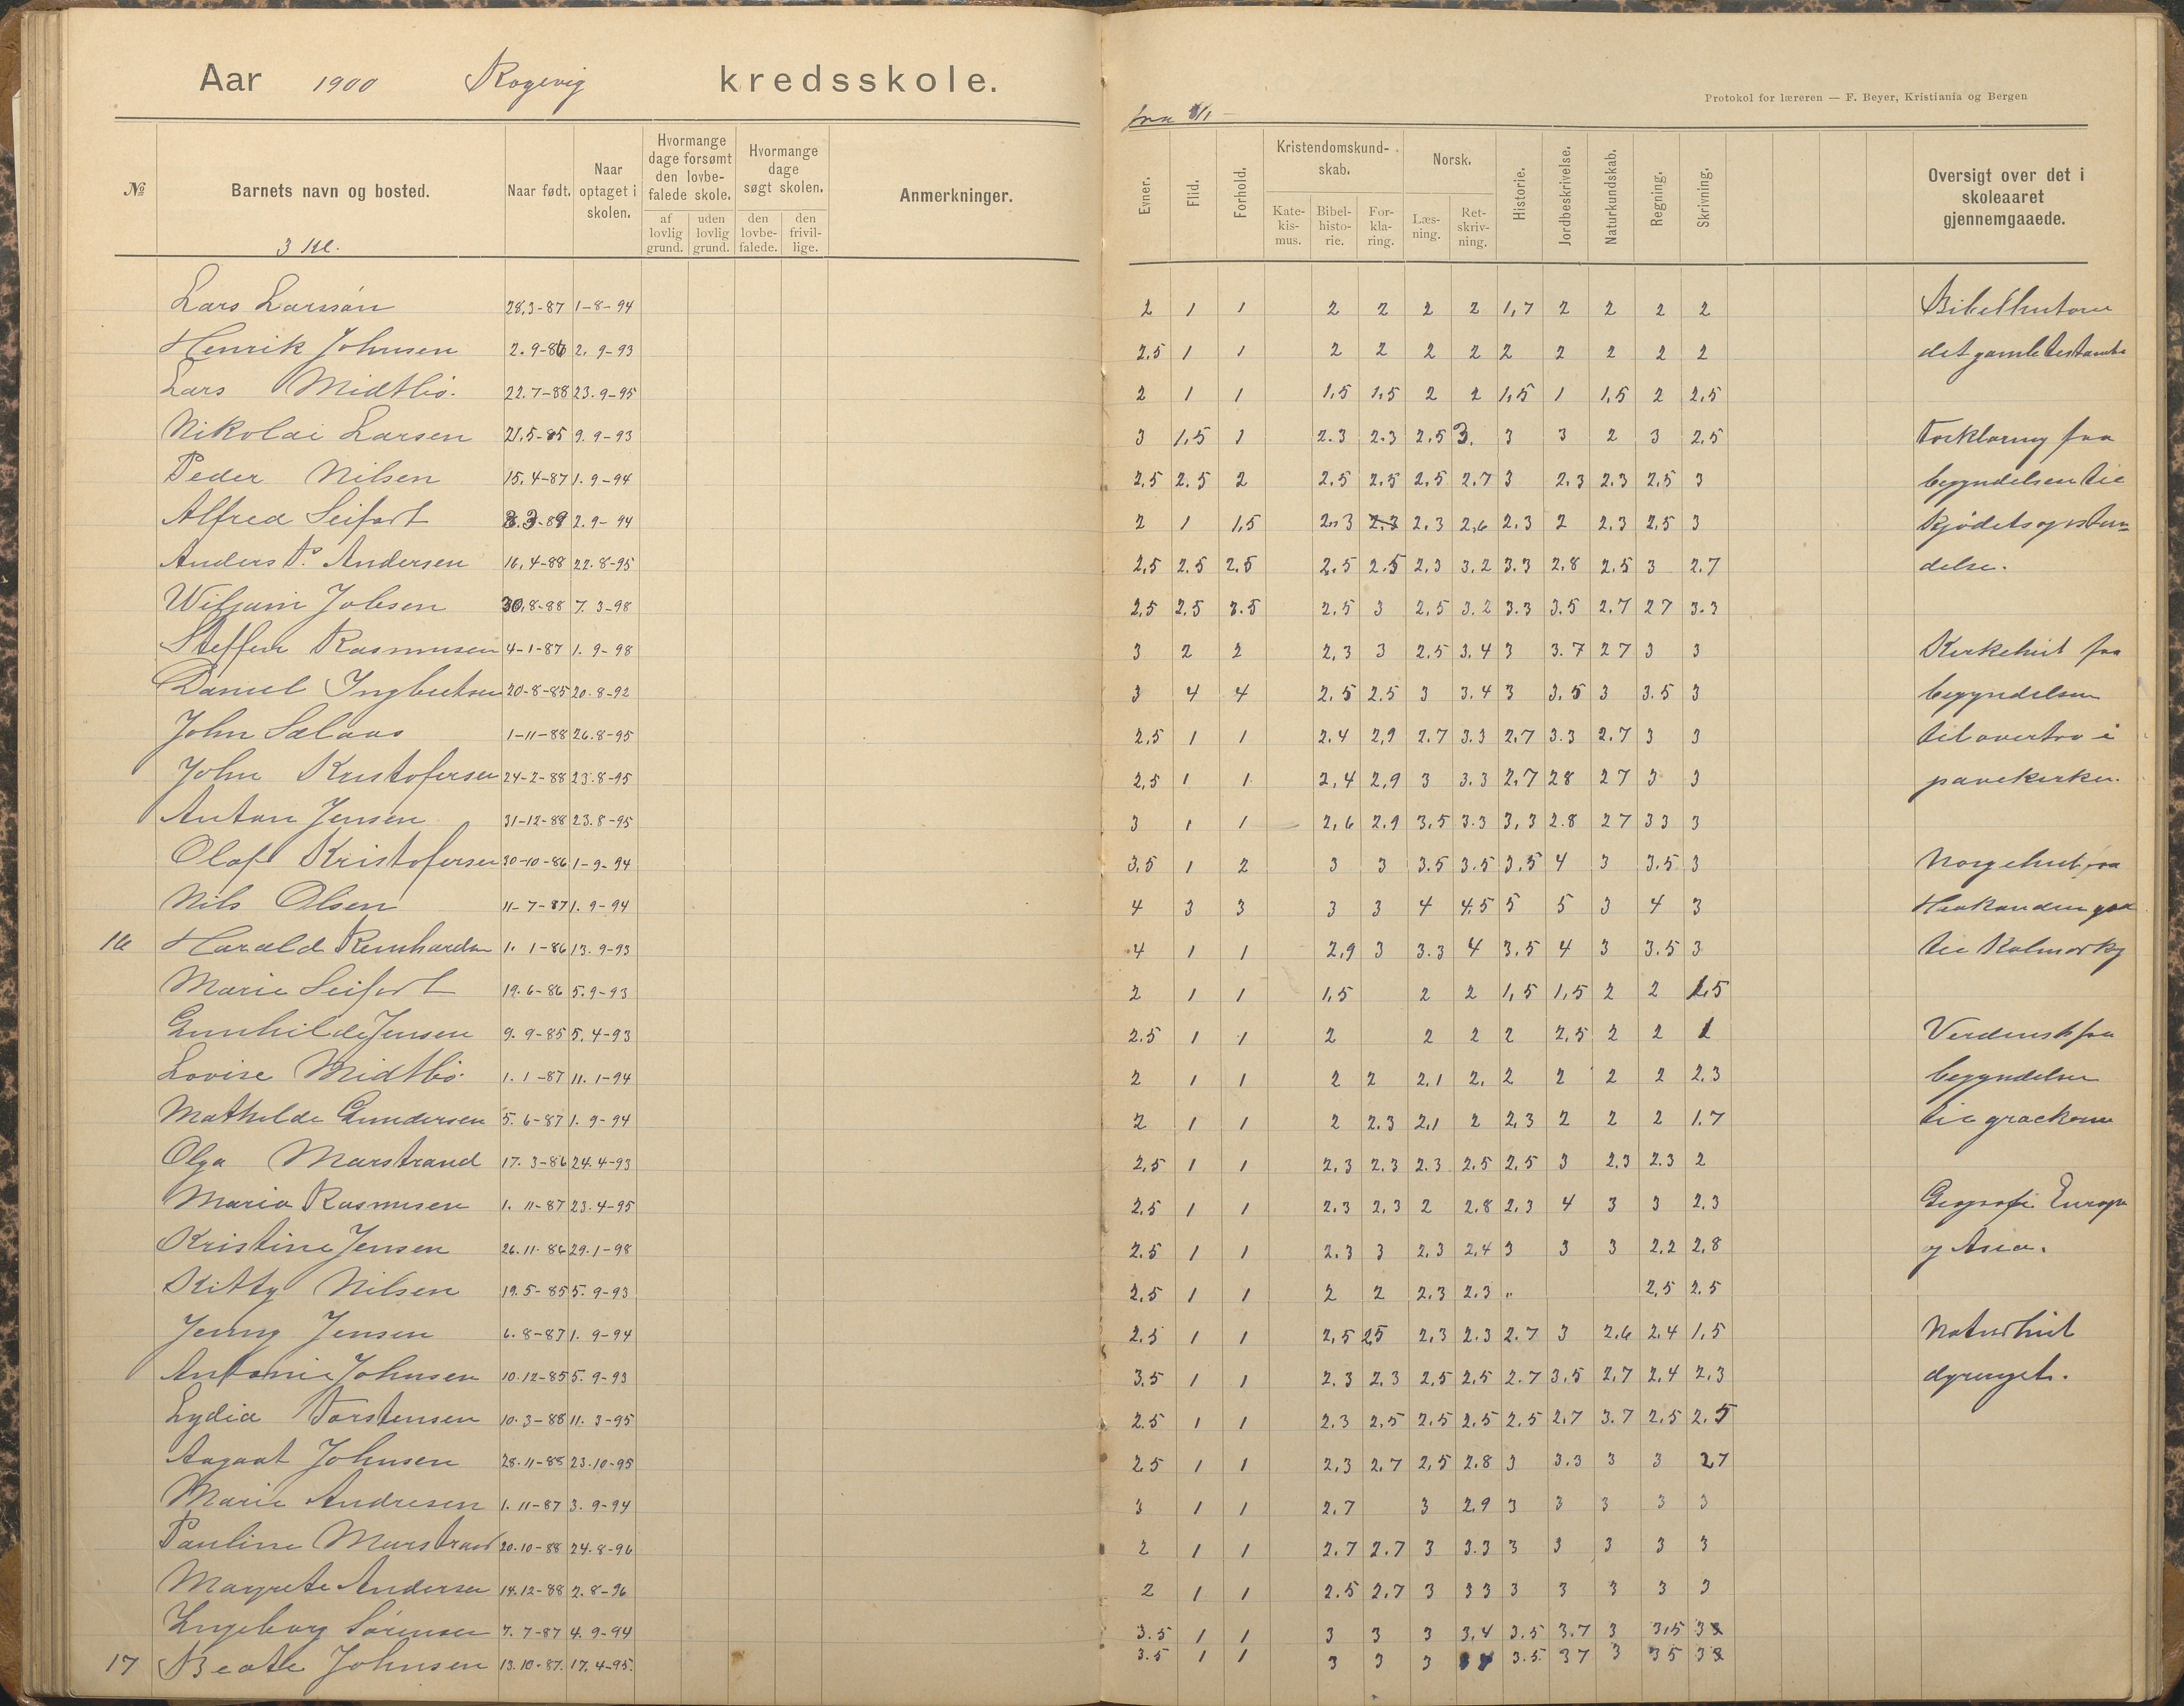 Aar 1900 Rogevig kredsskole.
Protokol for læreren — F. Beyer, Kristiania og Bergen
fra 8/1
№ Barnets navn og bosted. Naar født. Naar optaget i skolen. Hvormange dage forsømt den lovbefalede skole. af lovlig grund. uden lovlig grund. Hvormange dage søgt skolen. den lovbefalede. den frivillige. Anmerkninger. Evner. Flid. Forhold. Kristendomskundskab. Katekismus. Bibelhistorie. Forklaring. Norsk. Læsning. Retskrivning. Historie. Jordbeskrivelse. Naturkundskab. Regning. Skrivning. Oversigt over det i skoleaaret gjennemgaaede.
3 Kl.
Lars Larsson 28.3-87 1-8-94 2 1 1 2 2 2 2 1,7 2 2 2 2
Henrik Johnsen 2.9-86 2.9-93 2.5 1 1 2 2 2 2 2 2 2 2 2 det gamle testamte
Lars Midtbø. 22.7-88 23.9-95 2 1 1 1,5 1,5 2 2 1,5 1 1,5 2 2,5
Nikolai Larsen 21.5-85 9.9-93 3 1,5 1 2.3 2.3 2,5 3. 3 3 2 3 2,5 Forklaring fra
Peder Nilsen 15.4-87 1.9-94 2,5 2.5 2 2,5 2,5 2,5 2.7 3 2,3 2.3 2,5 3 begyndelsen til
Alfred Seifert 3-89 2.9-94 2 1 1,5 2.3 2.3 2,3 2,6 2.3 2 2,3 2,5 3 kjødets opstan=
Anders P. Andersen 16.4-88 22.8-95 2,5 2.5 2.5 2.5 2.5 2,3 3.2 3.3 2,8 2.5 3 2.7 delse.
Wiljam Jobsen 30.8-88 7.3-98 2,5 2,5 3.5 2,5 3 2,5 3.2 3.3 3.5 2,7 27 3.3
Steffen Rasmusen 4-1-87 1.9-98 3 2 2 2,3 3 2,5 3.4 3 3.7 27 3 3 Kirkehist fra
Daniel Ingbertsen 20-8-85 20.8-92 3 4 4 2,5 2.5 3 3.4 3 3,5 3 3.5 3 begyndelsen
John Salaas 1-11-88 26.8-95 2,5 1 1 2.4 2,9 2.7 3.3 2,7 3.3 2.7 3 3 til overtro i
John Kristofersen 24-2-88 23.8-95 2,5 1 1 2,4 2,9 3 3.3 2,7 28 27 3 3 pavekirken.
Anton Jensen 31-12-88 23.8-95 3 1 1 2,6 2.9 3,5 3.3 3,3 2.8 27 33 3
Olaf Kristofersen 30-10-86 1-9-94 3,5 1 2 3 3 3.5 3.5 3,5 4 3 3.5 3
Nils Olsen 11-7-87 1.9-94 4 3 3 3 3 4 4.5 5 5 3 4 3
16 Harald Reinhardsen 1.1-86 13.9-93 4 1 1 2,9 3 3.3 4 3,5 4 3 3.5 3
Marie Seifert 19.6-86 5.9-93 2 1 1 1,5 2 2 1,5 1,5 2 2 1,5
Gunhilde Jensen 9.9-85 5.4-93 2.5 1 1 2 2 2 2 2,5 2 2 1 Verdensh fra
Lovise Midtbø. 1.1-87 11.1-94 2 1 1 2 2 2,1 2. 2 2 2 2 2,3 begyndelsen
Mathilde Gundersen 5.6-87 1.9-94 2 1 1 2 2.3 2,1 2 2,3 2 2 2 1.7 til grækerne
Olga Marstrand 17.3-86 24.4-93 2,5 1 1 2.3 2.3 2.3 2.5 2,5 3 2.3 2.3 2
Maria Rasmusen 1.11-87 23.4-95 2,5 1 1 2.3 2,3 2 2.8 2,3 4 3 3 2,3 Geografi Europa
Kristine Jensen 26.11.86 29.1-98 2.5 1 1 2.3 3 2,3 2,4 3 3 3 2,2 2,8 og Asia.
Kitty Nilsen 19.5-85 5.9-93 2,5 1 1 2 2 2.3 2.3 " 2,5 2.5
Jenny Jensen 6.8-87 1.9-94 2.5 1 1 2,5 2,5 2,3 2.3 2.7 3 2.6 2.4 1,5 Naturhist
Antonie Johnsen 10.12-85 5.9-93 3,5 1 1 2.3 2.3 2,5 2,5 2.7 3,5 2,7 2,4 2,3 dyreriget.
Lydia Torstensen 10.3-88 11.3-95 2.5 1 1 2.3 2,5 2,5 2,5 2.5 2,7 3.7 2,5 2.5
Aagaat Johnsen 28.11-88 23.10-95 2,5 1 1 2,3 2,7 2,5 2.8 3 3.3 3 3 27
Marie Andresen 1.11-87 3.9-94 3 1 1 2.7 3 2.9 3 3 3 3 3
Pauline Marstrand 20.10-88 24.8-96 2 1 1 2.7 2.7 3 3.3 3 3 3 3 3
Magrete Andersen 14.12-88 2.8-96 2 1 1 2.5 2,7 3 33 3 3 3 3 3
Ingeborg Sørensen 7.7-87 4.9-94 3.5 1 1 3 3 3 3,4 3.5 3.7 3 3,5 3
17 Beate Johnsen 13.10-87. 17.4-95. 3.5 1 1 3 3 3 3.5 37 3 35 3